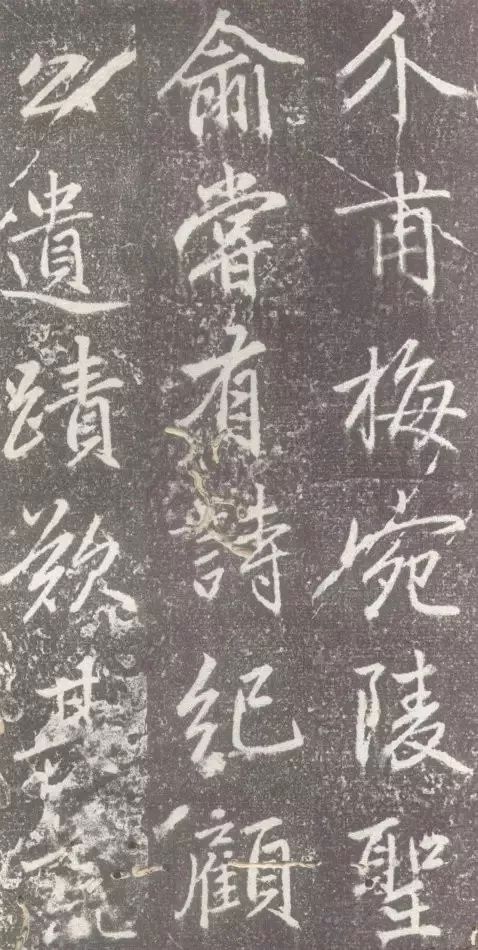 介甫梅宛陵聖
俞嘗有詩紀顧
公遺蹟歎其